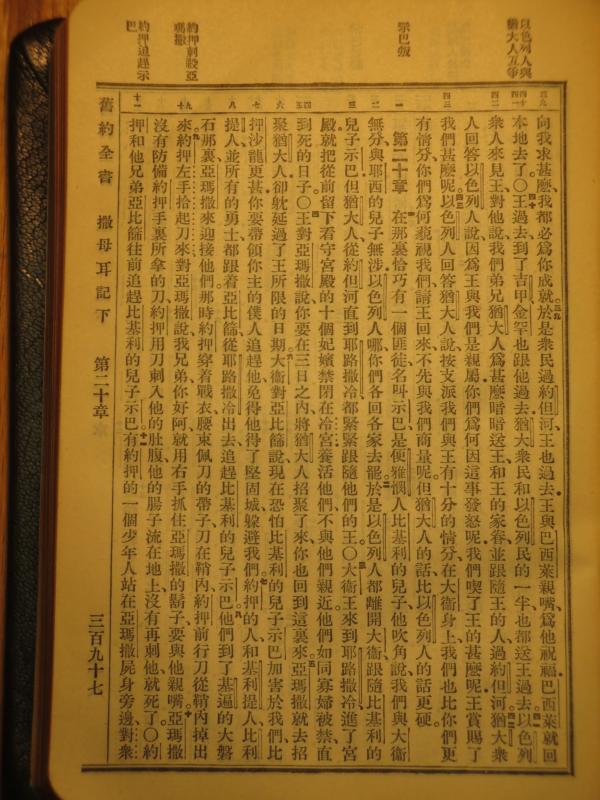 以色列人與
猶大人互爭
示巴叛
約押刺殺亞
瑪撒
約押追趕示
巴
三九 四十 四一 四二 四三 一 二 三 四五 六 七 八 九十 十一
向我求甚麼我都必爲你成就三九於是衆民過約但河王也過去王與巴西萊親嘴爲他祝福巴西萊就回
本地去了〇四十王過去到了吉甲金罕也跟他過去猶大衆民和以色列民的一半也都送王過去四一以色列
衆人來見王對他說我們弟兄猶大人爲甚麼暗暗送王和王的家眷並跟隨王的人過約但河四二猶大衆
人回答以色列人說因爲王與我們是親屬你們爲何因這事發怒呢我們喫了王的甚麼呢王賞賜了
我們甚麼呢四三以色列人回答猶大人說按支派我們與王有十分的情分在大衛身上我們也比你們更
有情分你們爲何藐視我們請王回來不先與我們商量呢但猶大人的話比以色列人的話更硬
第二十章 一在那裏恰巧有一個匪徒名叫示巴是便雅憫人比基利的兒子他吹角說我們與大衛
無分與耶西的兒子無涉以色列人哪你們各回各家去罷二於是以色列人都離開大衛跟隨比基利的
兒子示巴但猶大人從約但河直到耶路撒冷都緊緊跟隨他們的王〇三大衛王來到耶路撒冷進了宮
殿就把從前留下看守宮殿的十個妃嬪禁閉在冷宮養活他們不與他們親近他們如同寡婦被禁直
到死的日子〇四王對亞瑪撒說你要在三日之內將猶大人招聚了來你也回到這裏來五亞瑪撒就去招
聚猶大人卻躭延過了王所限的日期六大衛對亞比篩說現在恐怕比基利的兒子示巴加害於我們比
押沙龍更甚你要帶領你主的僕人追趕他免得他得了堅固城躲避我們七約押的人和基利提人比利
提人並所有的勇士都跟着亞比篩從耶路撒冷出去追趕比基利的兒子示巴八他們到了基遍的大磐
石那裏亞瑪撒來迎接他們那時約押穿着戰衣腰束佩刀的帶子刀在鞘內約押前行刀從鞘內掉出
來九約押左手拾起刀來對亞瑪撒說我兄弟你好阿就用右手抓住亞瑪撒的鬍子要與他親嘴十亞瑪撒
沒有防備約押手裏所拿的刀約押用刀刺入他的肚腹他的腸子流在地上沒有再刺他就死了〇約
押和他兄弟亞比篩往前追趕比基利的兒子示巴十一有約押的一個少年人站在亞瑪撒屍身旁邊對衆
舊約全書 撒母耳記下 第二十章 三百九十七